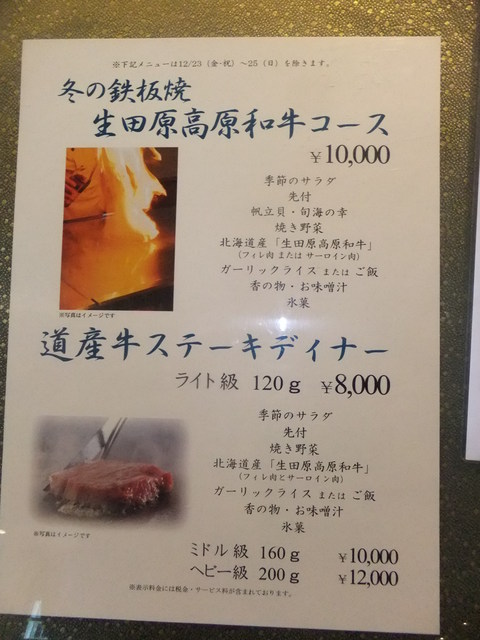 ※下記メニューは12/23(金·祝)〜25(日)を除きます。
冬の鉄板焼
生田原高原和牛コース
¥10,000
季節のサラダ
先付
帆立貝・旬海の幸
焼き野菜
北海道産「生田原高原和牛」
(フィレ肉 または サーロイン肉)
ガーリックライス または ご飯
香の物・お味噌汁
氷菓
※写真はイメージです
道産牛ステーキディナー
ライト級 120g ¥8,000
季節のサラダ
先付
焼き野菜
北海道産「生田原高原和牛」
(フィレ肉とサーロイン肉)
ガーリックライス または ご飯
香の物・お味噌汁
氷菓
※写真はイメージです
ミドル級 160g ¥10,000
ヘビー級 200g ¥12,000
※表示料金には税金・サービス料が含まれております。